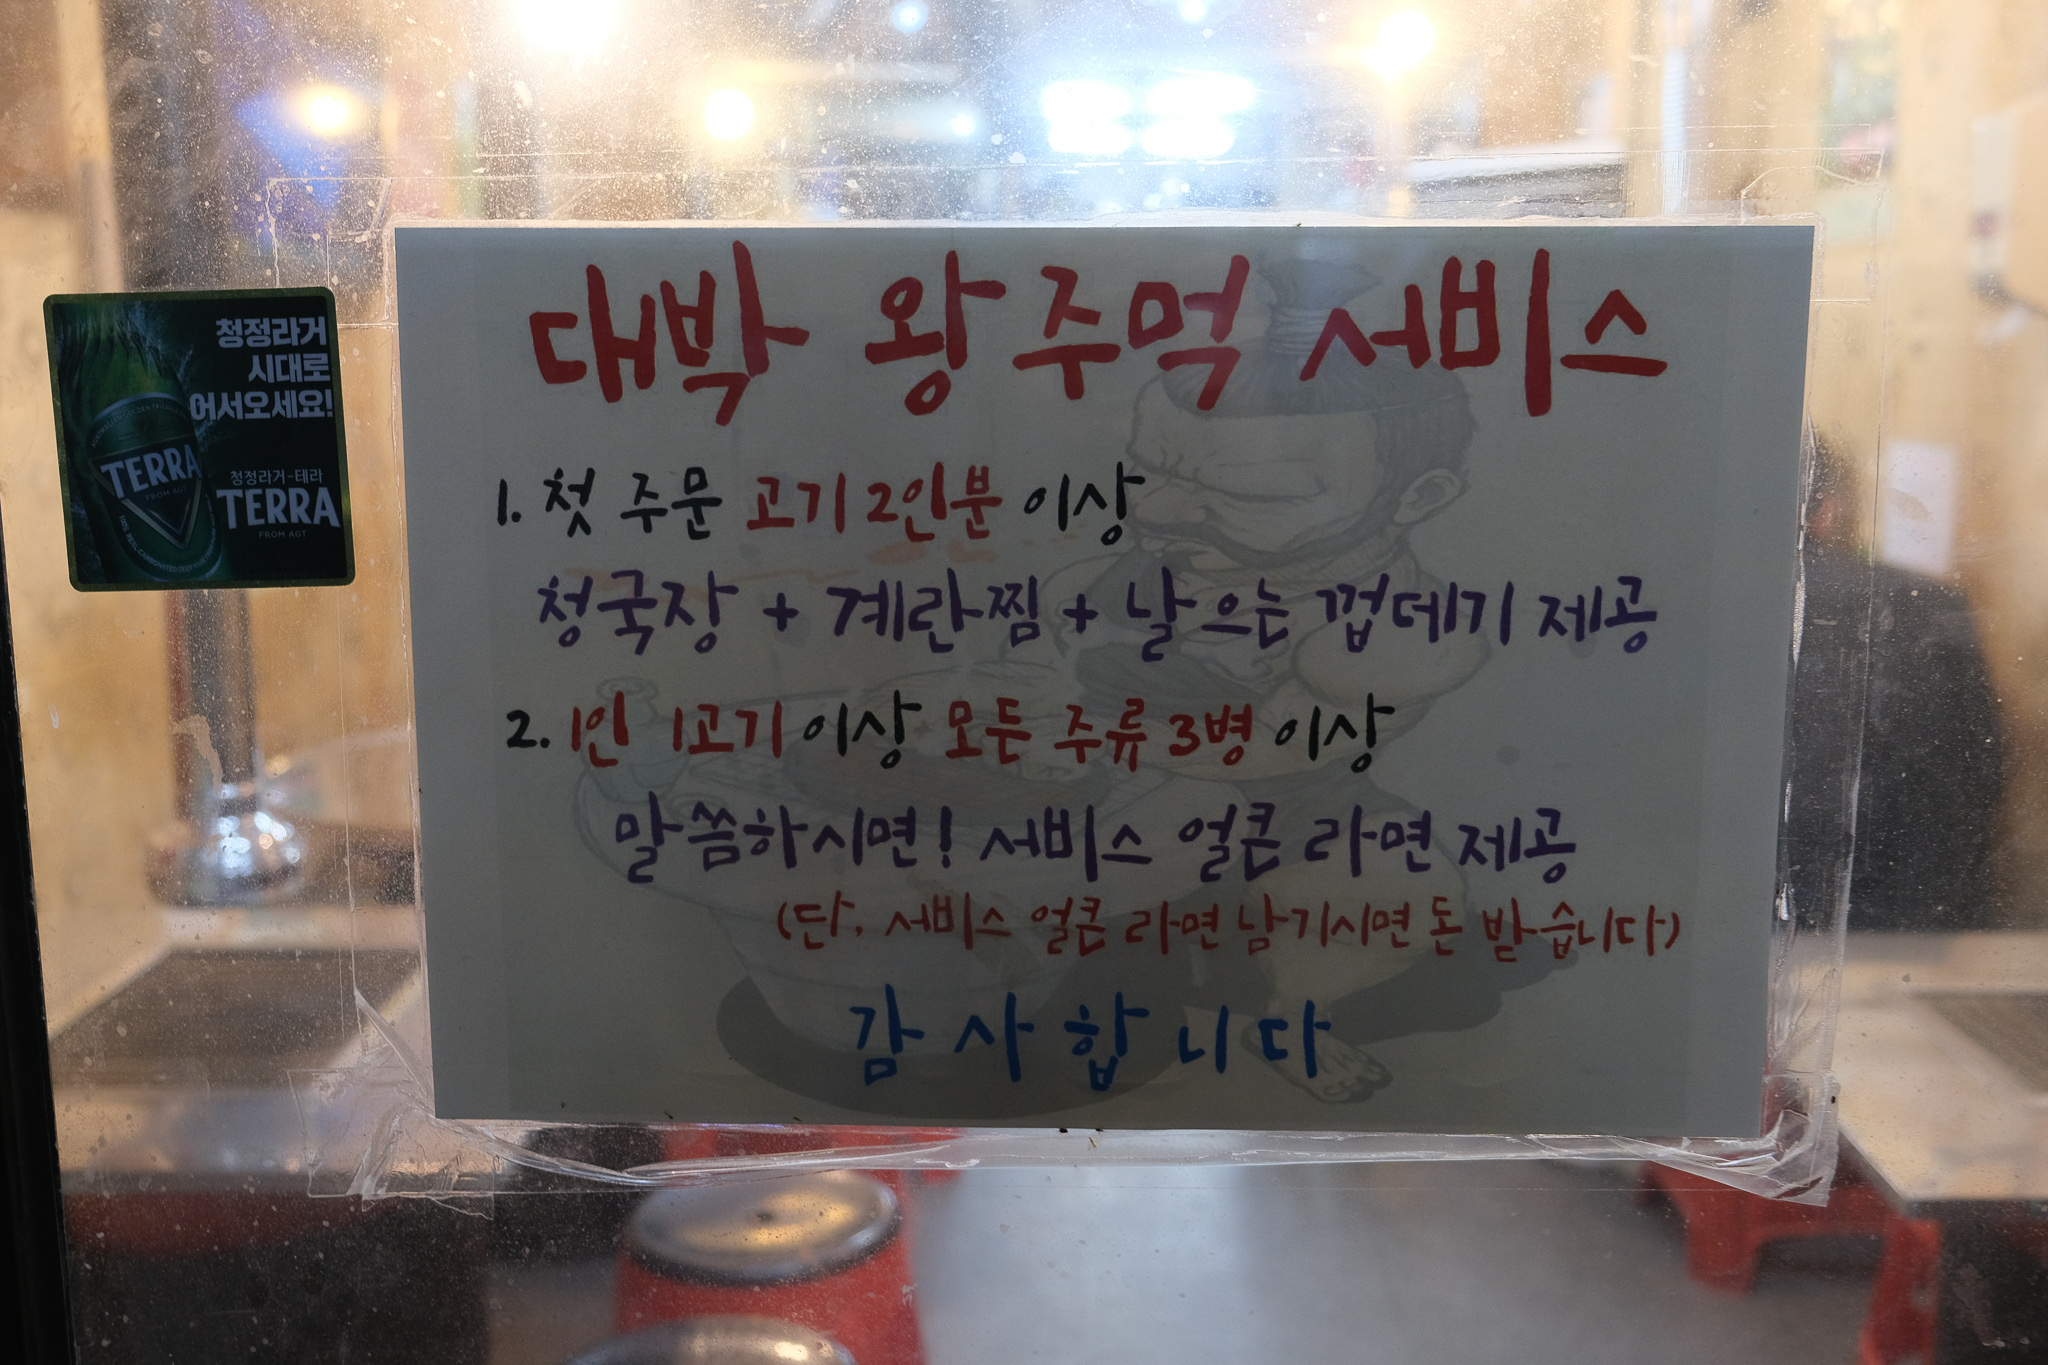 대박 왕주먹 서비스
1. 첫 주문 고기 2인분 이상
청국장 + 계란찜 + 날으는 껍데기 제공
2. 1인 1고기 이상 모든 주류 3병 이상
말씀하시면! 서비스 얼큰 라면 제공
(단, 서비스 얼큰 라면 남기시면 돈 받습니다)
감사합니다
청정라거
시대로
어서오세요!
TERRA
FROM AGT
청정라거-테라
TERRA
FROM AGT